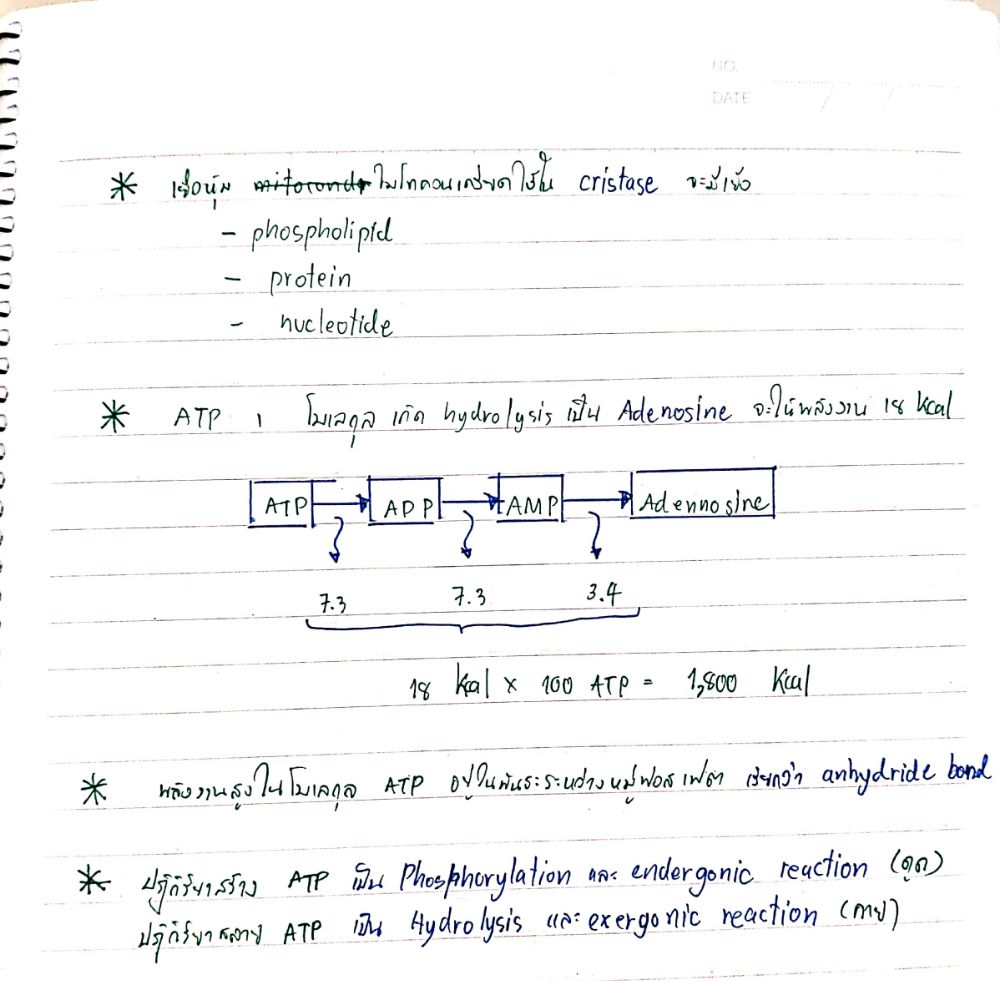 NO.
DATE
* เยื่อหุ้ม ไมโทคอนเดรีย cristase จะมีเยื่อ
- phospholipid
- protein
- nucleotide
* ATP 1 โมเลกุล เกิด hydrolysis เป็น Adenosine จะให้พลังงาน 18 kcal
ATP ADP AMP Adennosine
7.3 7.3 3.4
18 kcal × 100 ATP = 1,800 Kcal
* พลังงานสูงในโมเลกุล ATP อยู่ในพันธะระหว่างหมู่ฟอสเฟต เรียกว่า anhydride bond
* ปฏิกิริยาสร้าง ATP เป็น Phosphorylation และ endergonic reaction (ดูด)
ปฏิกิริยาสลาย ATP เป็น Hydrolysis และ exergonic reaction (คาย)